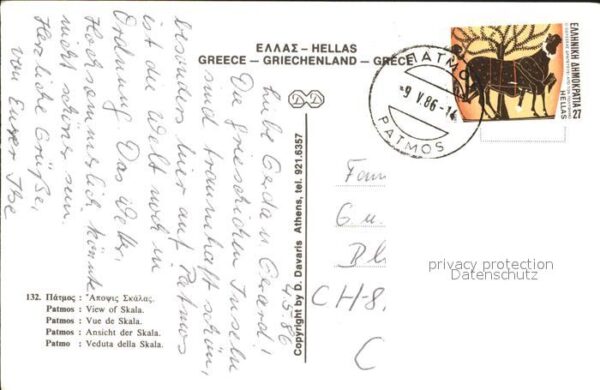 ΕΛΛΑΣ - HELLAS
GREECE - GRIECHENLAND - GRECE
ΕΛΛΗΝΙΚΗ ΔΗΜΟΚΡΑΤΙΑ
HELLAS
27
ΠΑΤΜΟΣ
9 V 86-14
PATMOS
4.5.86
Liebe Gerda u. Gerard!
Die griechischen Inseln
sind traumhaft schön,
besonders hier auf Patmos
ist die Welt noch in
Ordnung. Das Wetter,
Hochsommerlich könnte
nicht schöner sein.
Herzliche Grüße,
von Eurer Ilse
Fam
G u.
Bl
CH-8
C
Copyright by D. Davaris Athens, tel. 921.6357
132. Πάτμος : Ἄποψις Σκάλας.
Patmos : View of Skala.
Patmos : Vue de Skala.
Patmos : Ansicht der Skala.
Patmo : Veduta della Skala.
privacy protection
Datenschutz